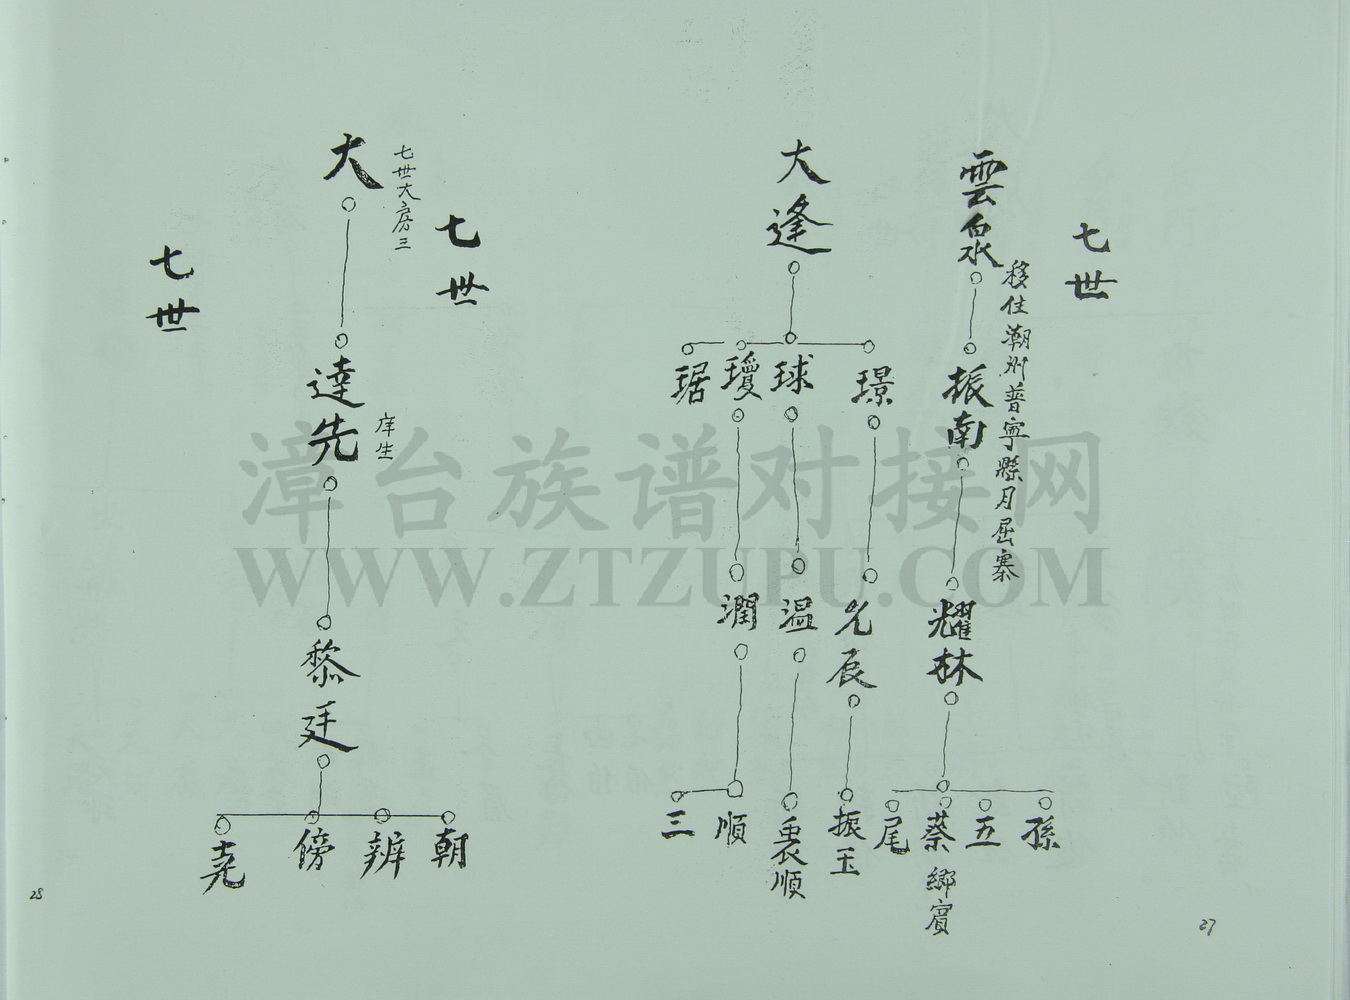 七世
雲泉
移住潮州普寧縣月屈寨
振南
耀林
孫
五
蔡
鄉賓
尾
大逢
璟
球
瓊
琚
允辰
温
潤
振玉
裏順
順
三
七世
七世大房三
大
達先
庠生
黎廷
朝
辨
傍
堯
七世
27
28
漳台族谱对接网
WWW.ZTZUPU.COM